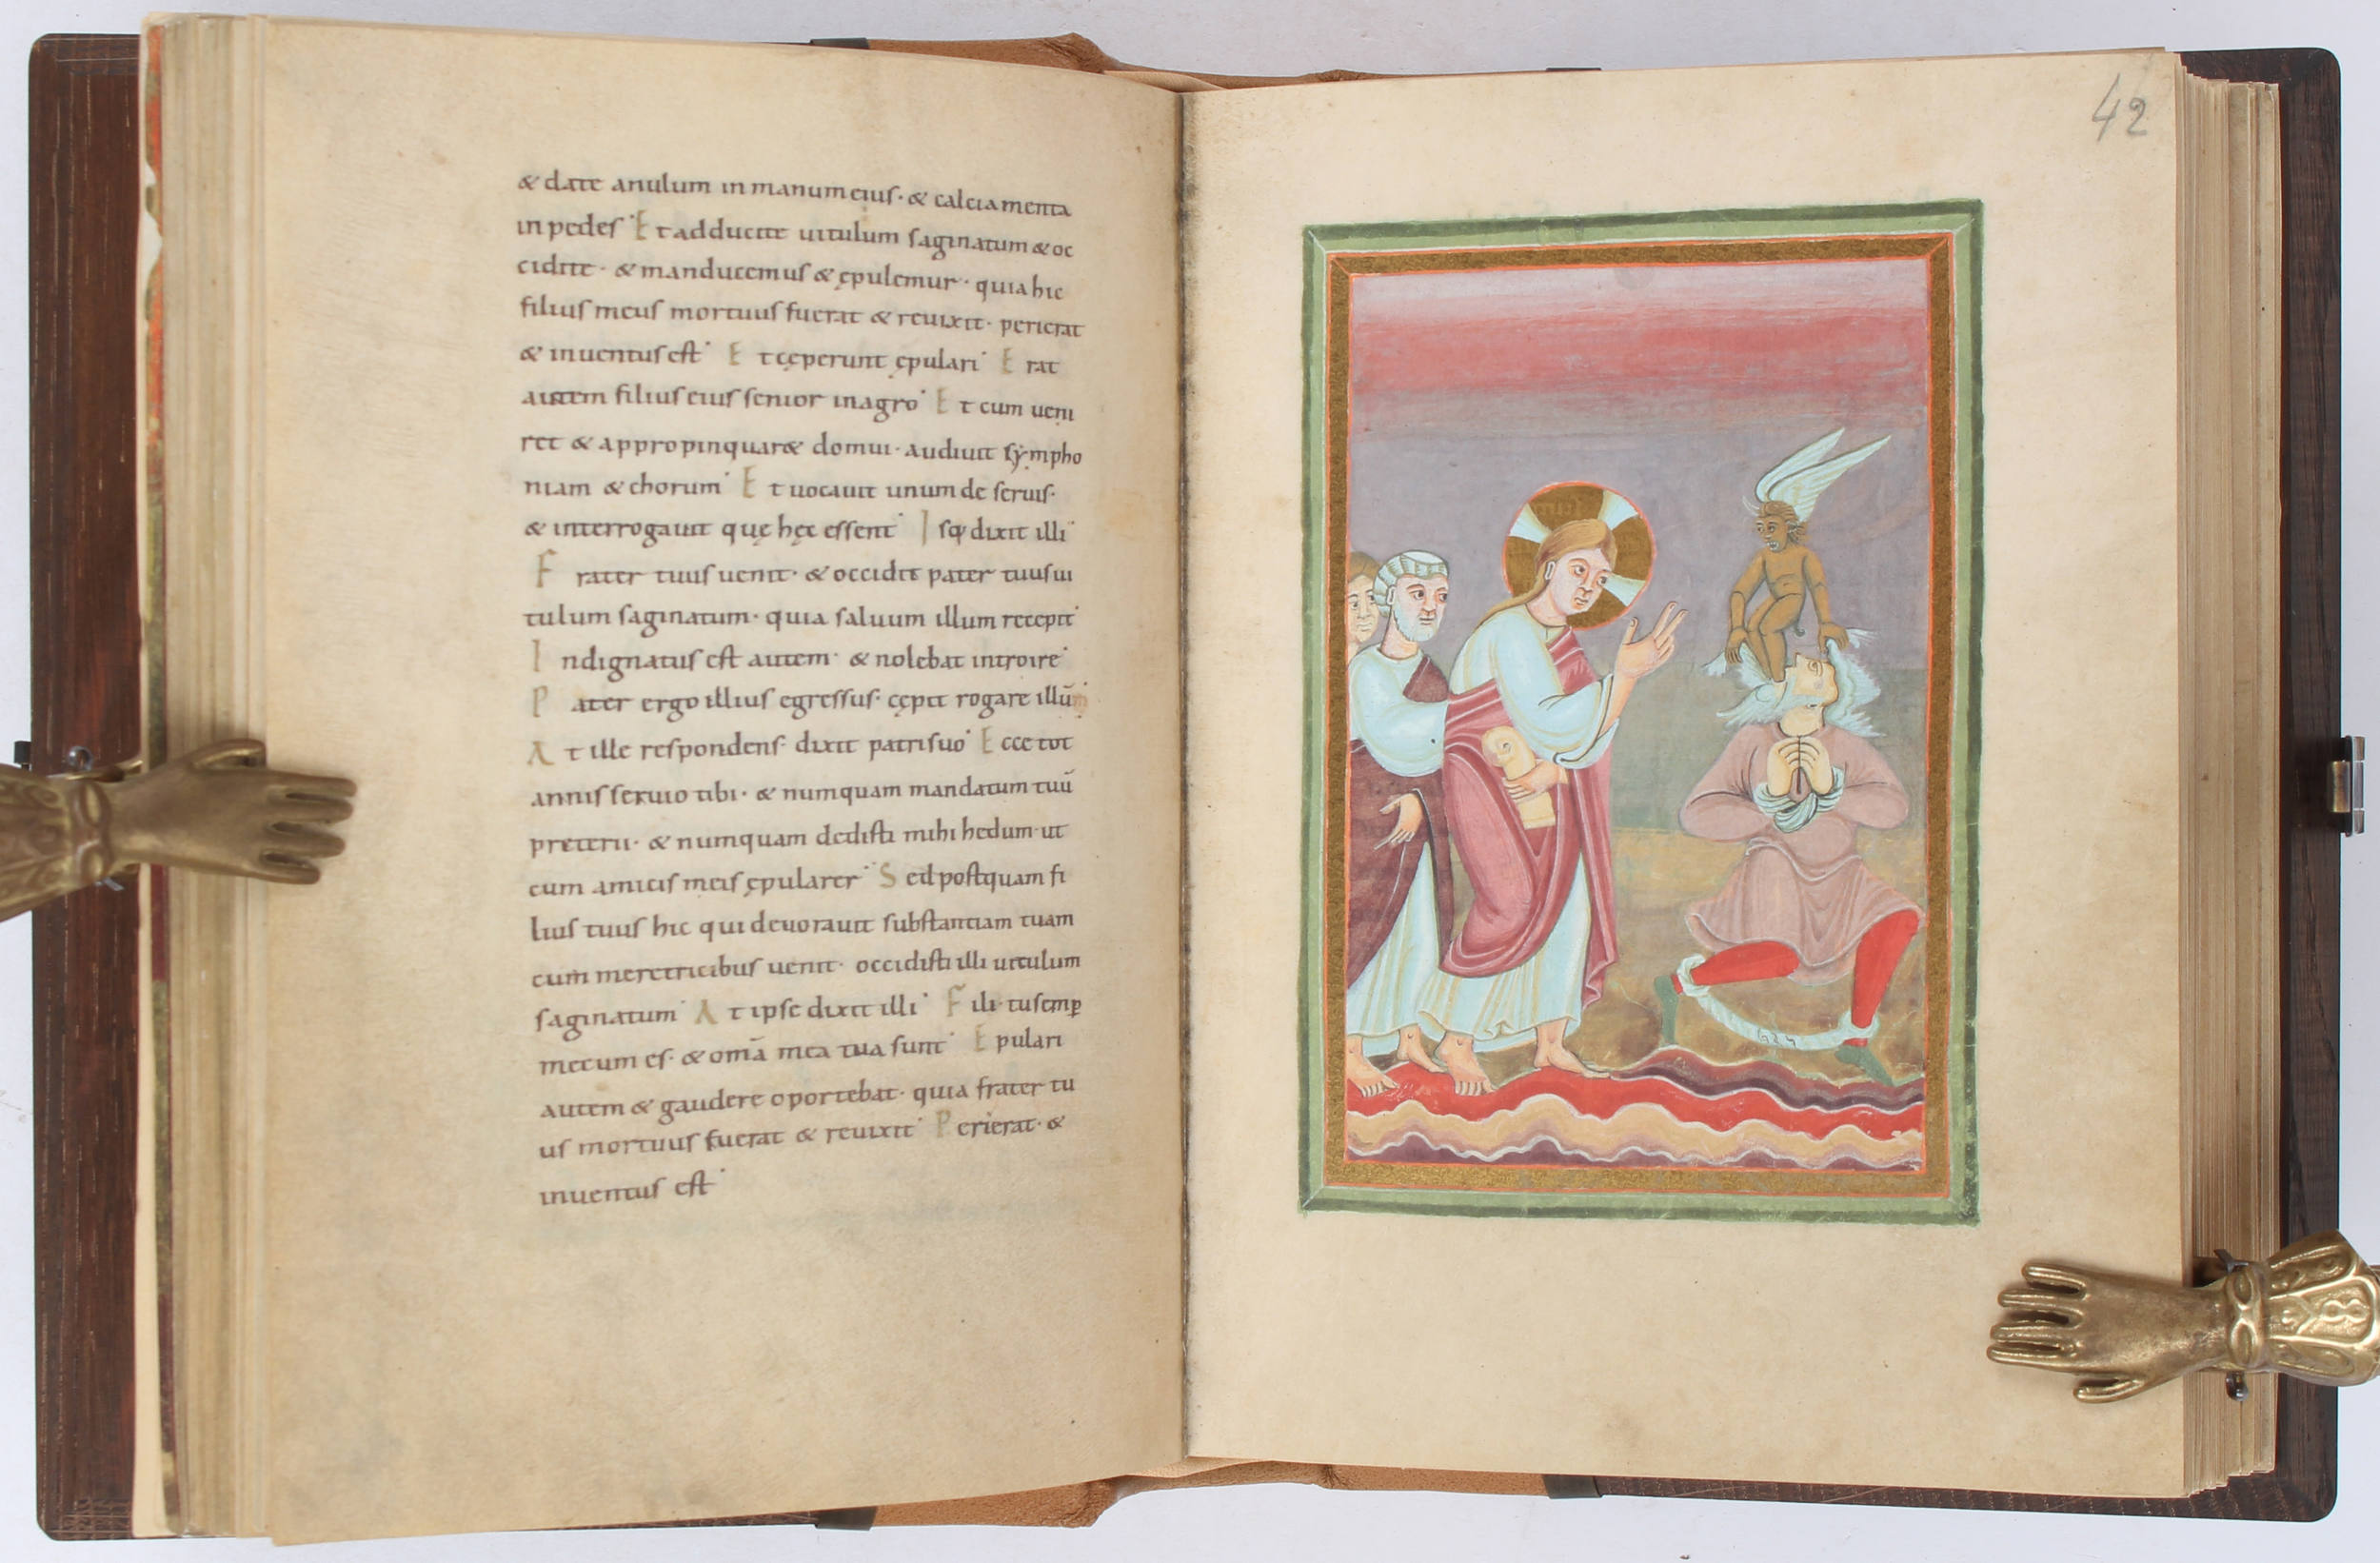 & date anulum in manum eius· & calciamenta
in pedes· Et adducite uitulum saginatum & oc
cidite· & manducemus & ępulemur· quia hic
filius meus mortuus fuerat & reuixit· perierat
& inuentus est· Et cęperunt ępulari· Erat
autem filius eius senior in agro· Et cum ueni
ret & appropinquar& domui· audiuit sympho
niam & chorum· Et uocauit unum de seruis·
& interrogauit quę hęc essent· Isq; dixit illi·
Frater tuus uenit· & occidit pater tuus ui
tulum saginatum· quia saluum illum recepit·
Indignatus est autem· & nolebat introire·
Pater ergo illius egressus· cępit rogare illū·
At ille respondens· dixit patri suo· Ecce tot
annis seruio tibi· & numquam mandatum tuū
preterii· & numquam dedisti mihi hedum· ut
cum amicis meis ępularer· Sed postquam fi
lius tuus hic qui deuorauit substantiam tuam
cum meretricibus uenit· occidisti illi uitulum
saginatum· At ipse dixit illi· Fili· tu semꝑ
mecum es· & om̄a mea tua sunt· Epulari
autem & gaudere oportebat· quia frater tu
us mortuus fuerat & reuixit· Perierat· &
inuentus est·
42